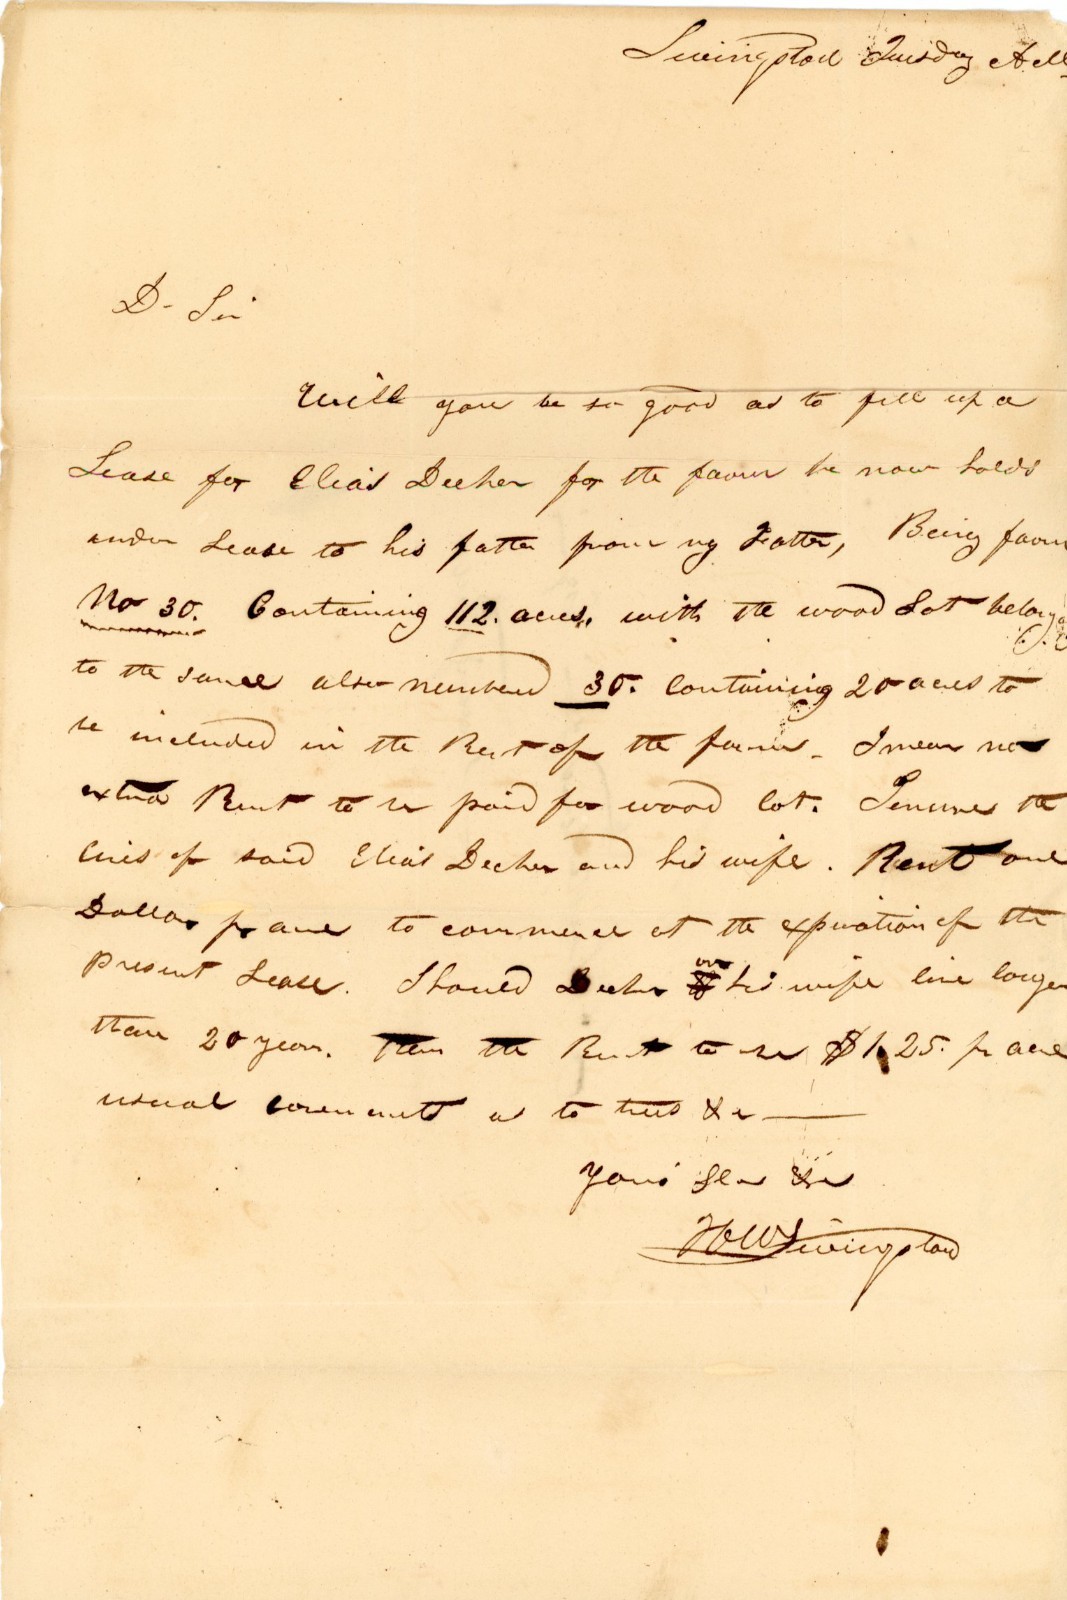 Livingston Tuesday A M
D- Sir
Will you be so good as to fill up a
Lease for Elias Decker for the farm he now holds
under Lease to his father from my Father, Being farm
No 30. Containing 112. acres, with the wood Lot belong
to the same also numbered 30. Containing 20 acres to
be included in the Rent of the farm - I mean no
extra Rent to be paid for wood lot. Tenure the
lives of said Elias Decker and his wife. Rent one
Dollar pr acre to commence at the expiration of the
Present Lease. Should Decker or his wife live longer
than 20 years. Then the Rent to be $1.25. pr acre
usual covenants as to trees &c
Yours &c
H W Livingston